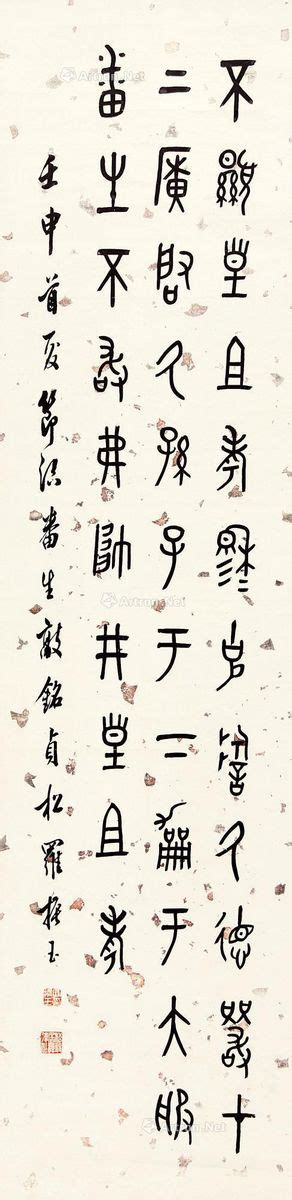 不顯皇且考穆=克哲氒德嚴才
上廣啟氒孫子于下于大服
番生不敢弗帥井皇且考
壬申首夏節臨番生敦銘貞松羅振玉
Artron.Net
Artron.Net
Artron.Net